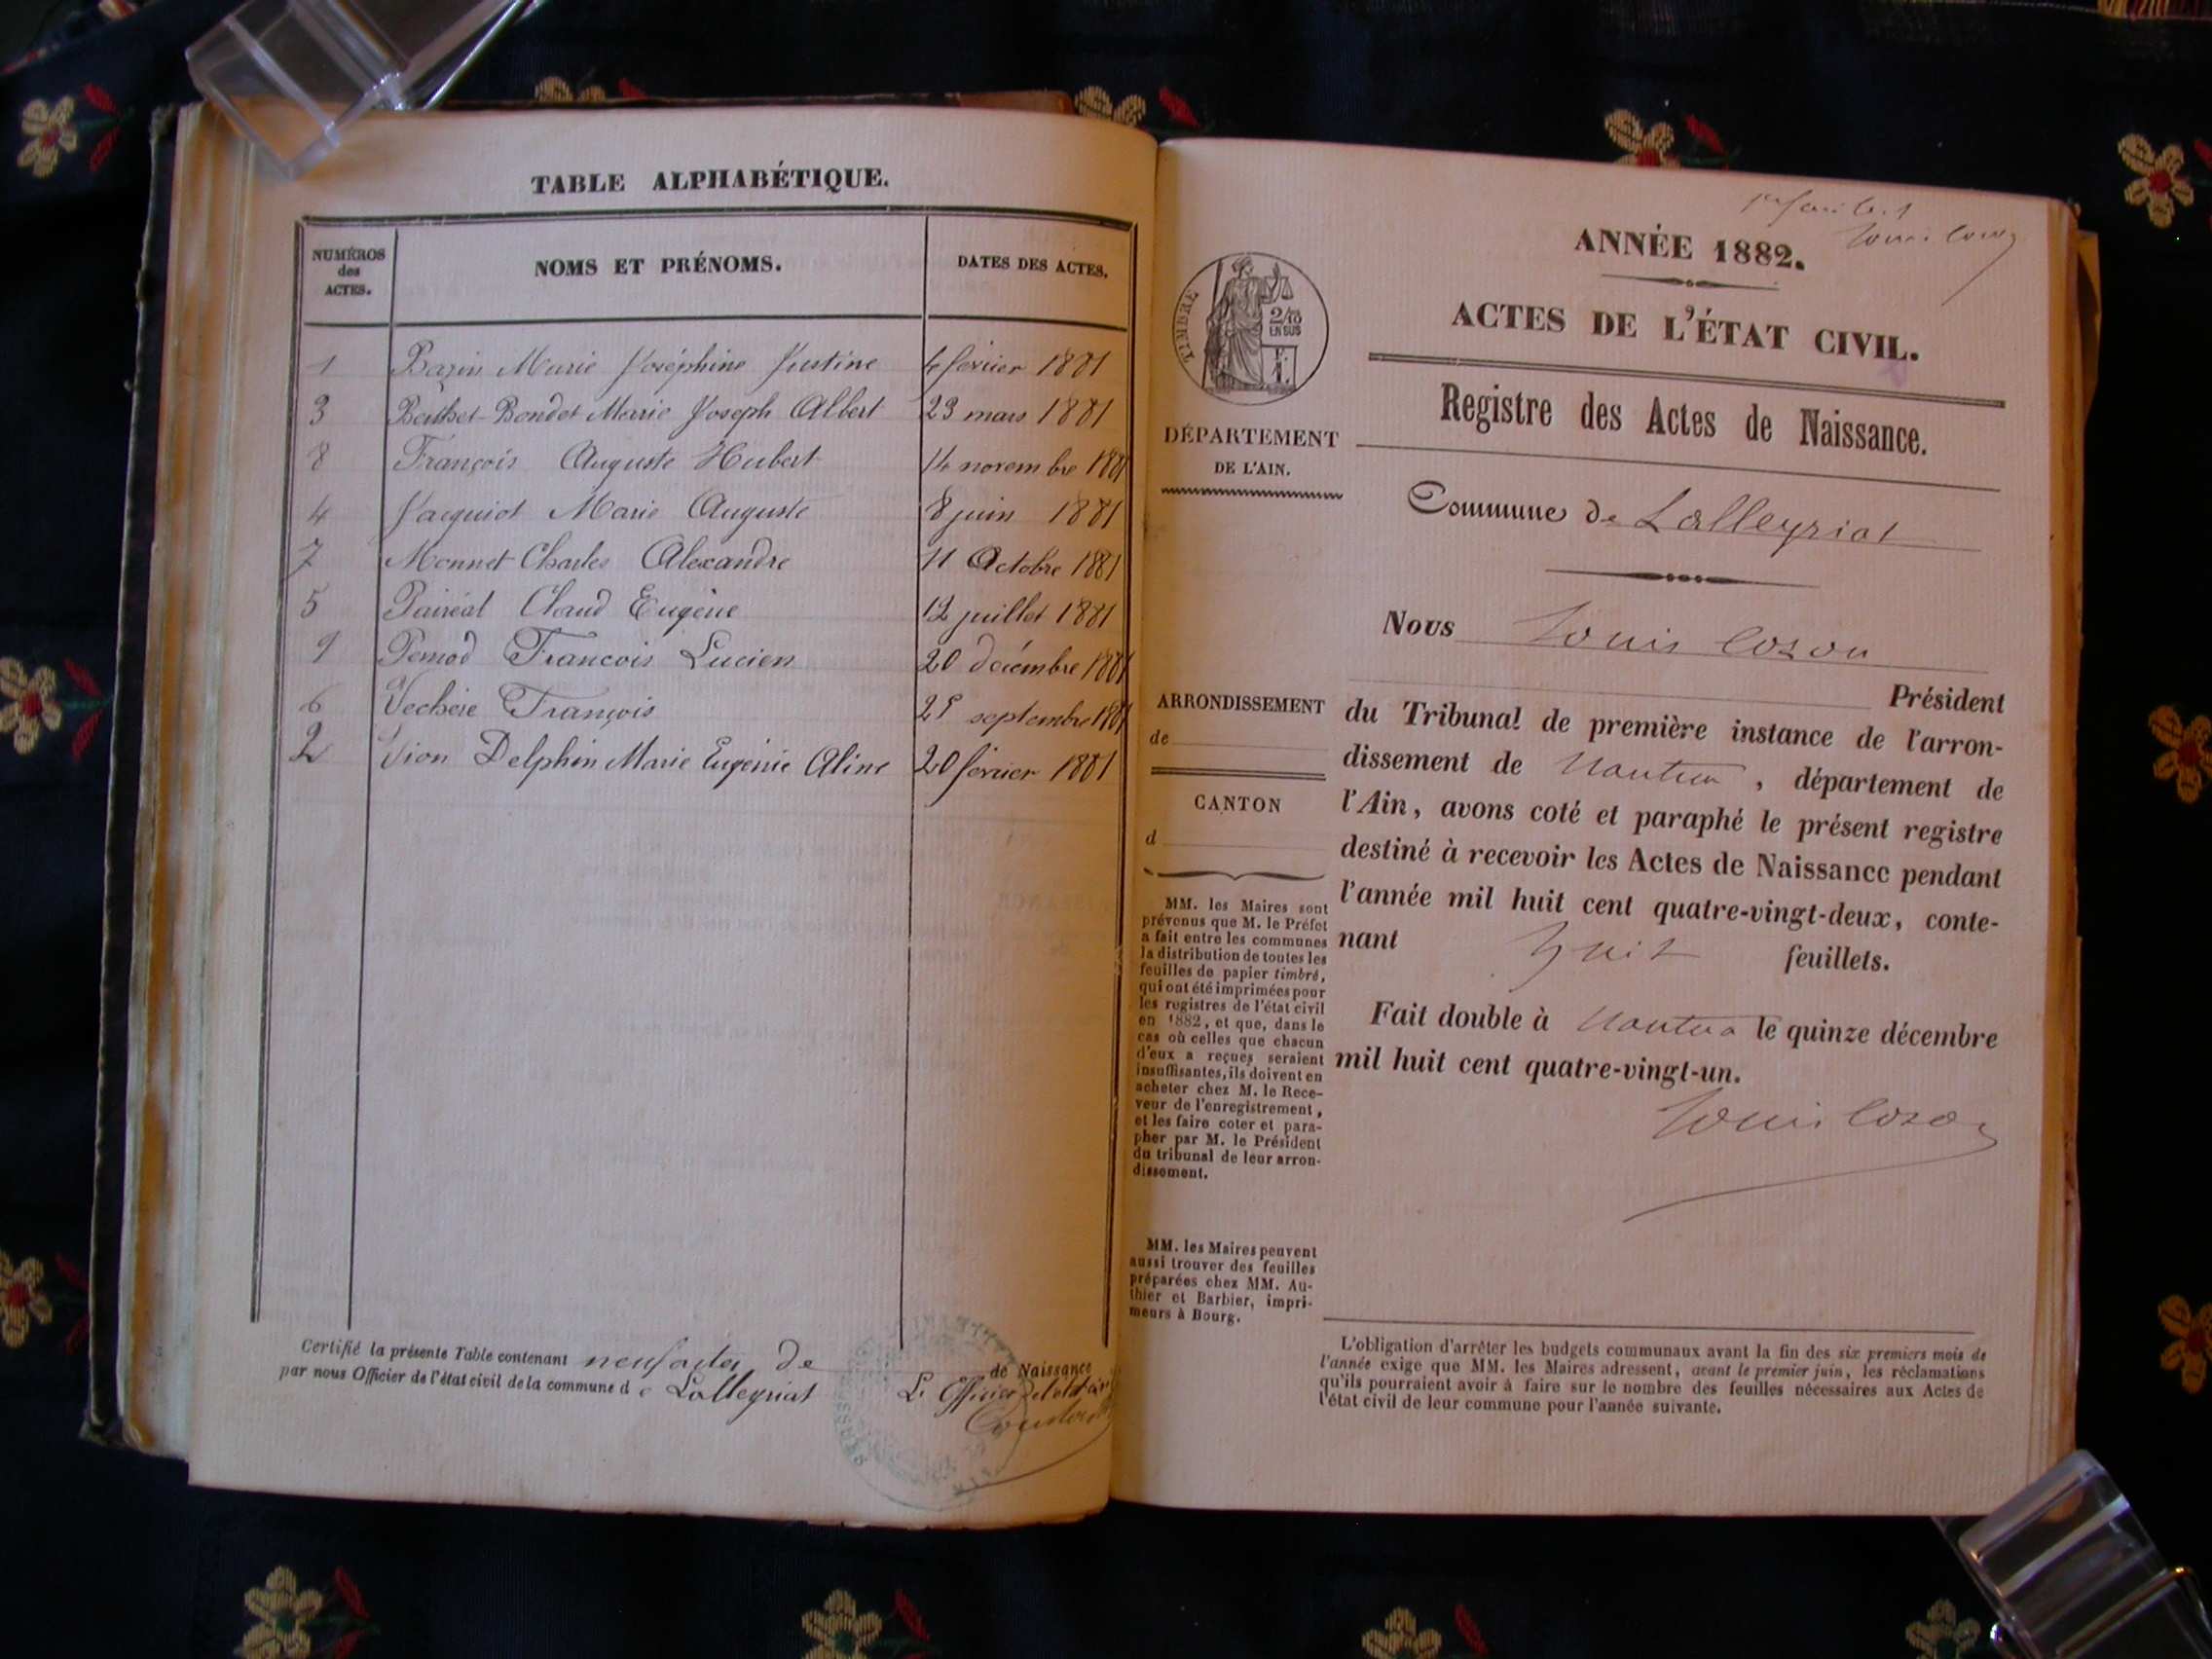 TABLE ALPHABÉTIQUE.
NUMÉROS des ACTES. NOMS ET PRÉNOMS. DATES DES ACTES.
1 Bazin Marie Joséphine Justine 4 février 1881
3 Berthet-Bondet Marie Joseph Albert 23 mars 1881
8 François Auguste Hubert 14 novembre 1881
4 Jacquiot Marie Auguste 8 juin 1881
7 Monnet Charles Alexandre 11 Octobre 1881
5 Claud Eugène 12 juillet 1881
9 Pernod Francois Lucien 20 décembre 1881
6 François septembre 1881
2 Vion Delphin Marie Eugénie Aline 20 février 1881
Certifié la présente Table contenant neuf actes de de Naissance
par nous Officier de l'état civil de la commune de Lalleyriat
L'Officier de l'état civil
ANNÉE 1882.
Louis Cozon
ACTES DE L'ÉTAT CIVIL.
TIMBRE
2/10
EN SUS
1 F.
Registre des Actes de Naissance.
DÉPARTEMENT
DE L'AIN.
Commune de Lalleyriat
Nous Louis Cozon
Président
du Tribunal de première instance de l'arron-
dissement de Nantua, département de
l'Ain, avons coté et paraphé le présent registre
destiné à recevoir les Actes de Naissance pendant
l'année mil huit cent quatre-vingt-deux, conte-
nant huit feuillets.
Fait double à Nantua le quinze décembre
mil huit cent quatre-vingt-un.
Louis Cozon
ARRONDISSEMENT
de
CANTON
d
MM. les Maires sont
prévenus que M. le Préfet
a fait entre les communes
la distribution de toutes les
feuilles de papier timbré,
qui ont été imprimées pour
les registres de l'état civil
en 1882, et que, dans le
cas où celles que chacun
d'eux a reçues seraient
insuffisantes, ils doivent en
acheter chez M. le Rece-
veur de l'enregistrement,
et les faire coter et para-
pher par M. le Président
du tribunal de leur arron-
dissement.
MM. les Maires peuvent
aussi trouver des feuilles
préparées chez MM. Au-
thier et Barbier, impri-
meurs à Bourg.
L'obligation d'arrêter les budgets communaux avant la fin des six premiers mois de
l'année exige que MM. les Maires adressent, avant le premier juin, les réclamations
qu'ils pourraient avoir à faire sur le nombre des feuilles nécessaires aux Actes de
l'état civil de leur commune pour l'année suivante.